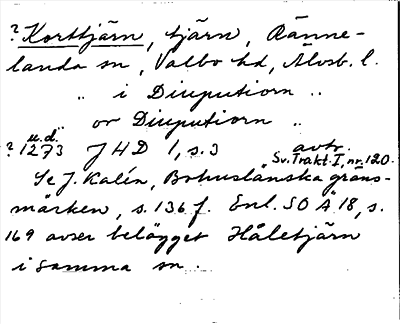 ? Korttjärn, tjärn, Ränne-
landa sn, Valbo hd, Älvsb. l.
„ i Diuputiorn „
or Diuputiorn „
u.d.
? 1273 JHD 1, s. 3 avtr.
Sv. Trakt. I, nr. 120.
Se J. Kalén, Bohuslänska gräns-
märken, s. 136 f. Enl. SOÄ 18, s.
169 avser belägget Håletjärn
i samma sn.